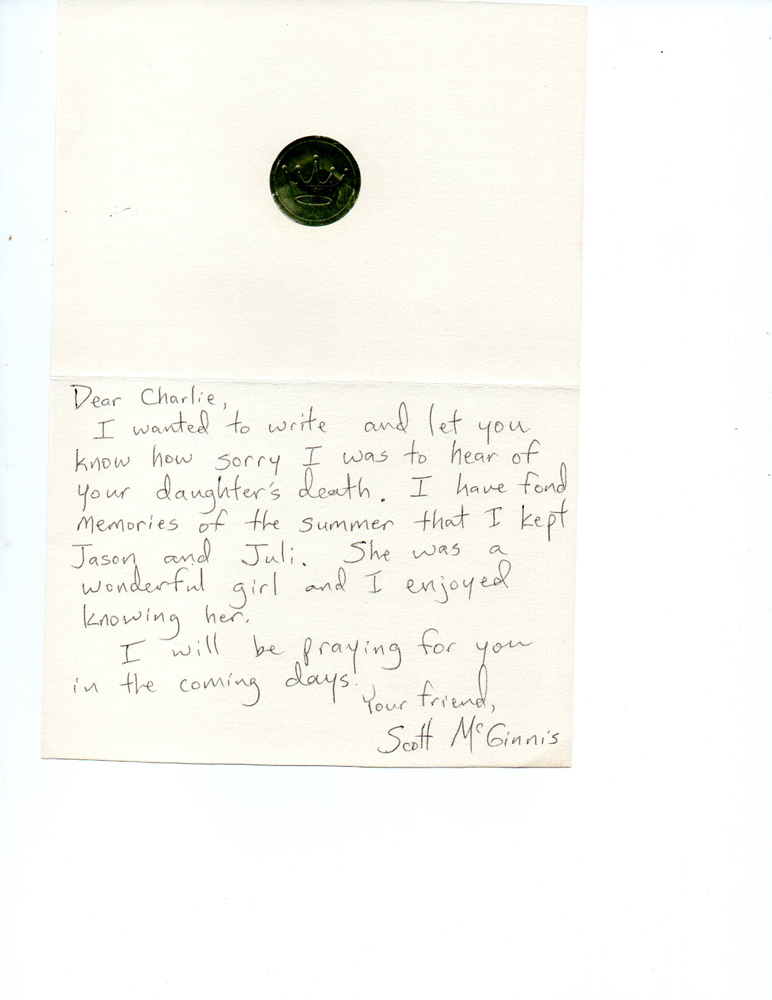 Dear Charlie,
I wanted to write and let you
know how sorry I was to hear of
your daughter's death. I have fond
memories of the summer that I kept
Jason and Juli. She was a
wonderful girl and I enjoyed
knowing her.
I will be praying for you
in the coming days.
Your friend,
Scott McGinnis